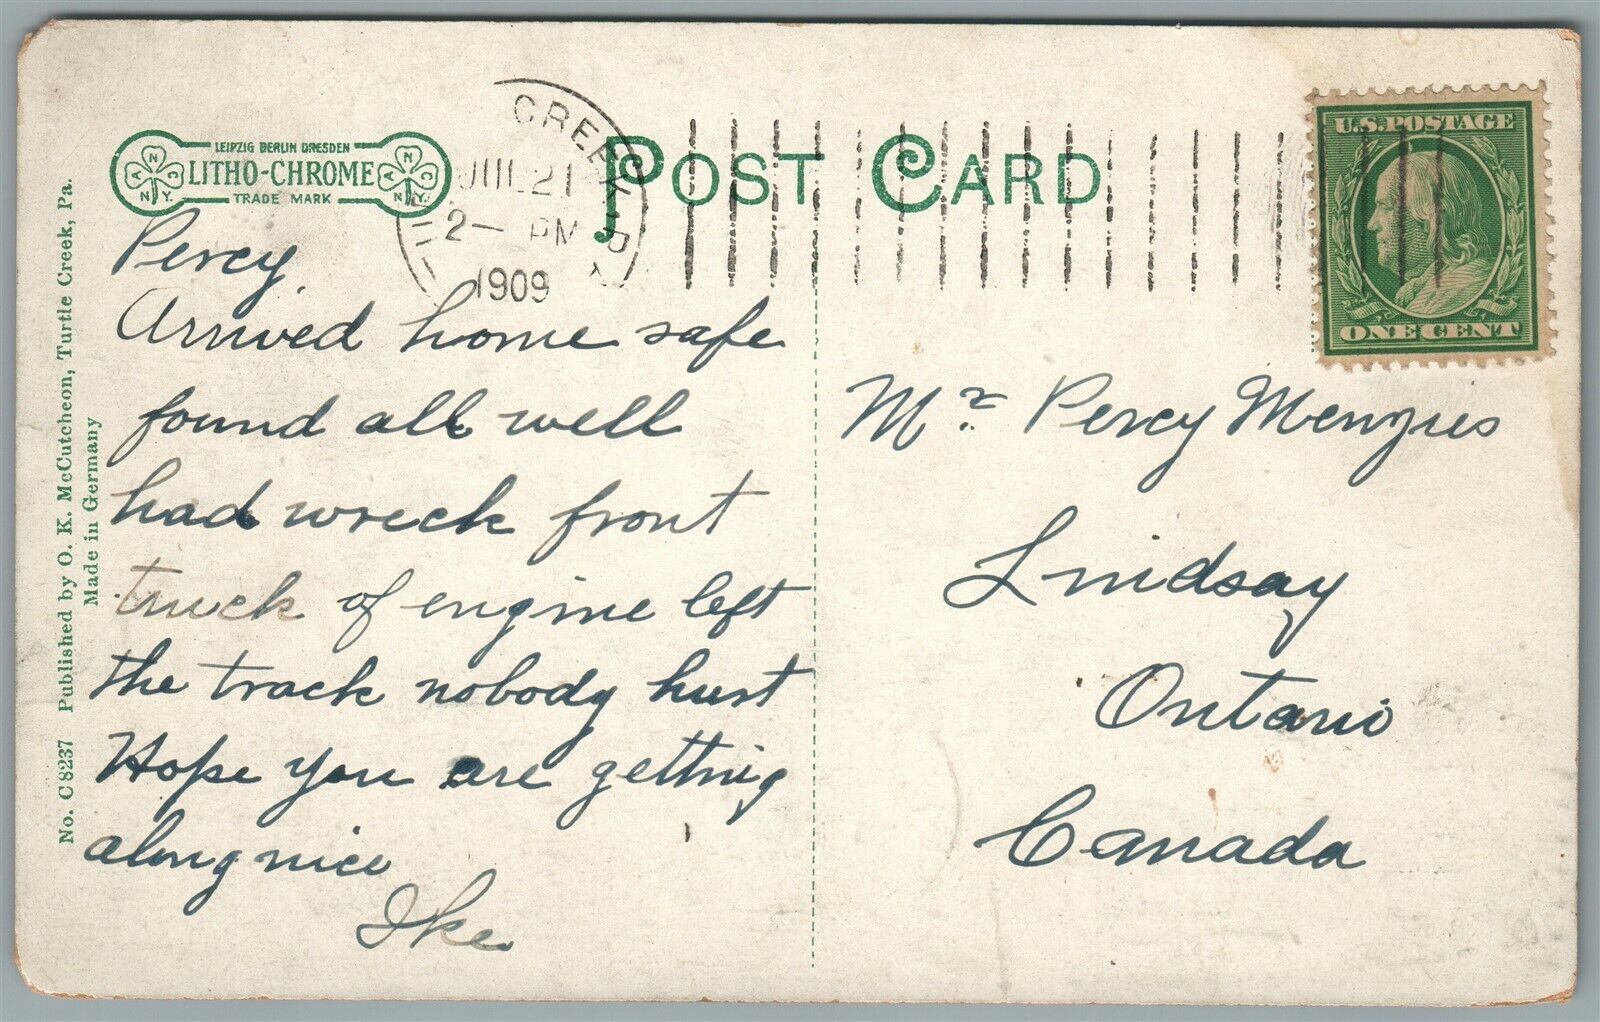 LEIPZIG BERLIN DRESDEN
LITHO-CHROME
TRADE MARK
CREEK
JUL 21
2- PM
1909
POST CARD
U.S. POSTAGE
ONE CENT
Percy
Arrived home safe
found all well
had wreck front
truck of engine left
the track nobody hurt
Hope you are getting
along nice
Ike
Mr. Percy Menzies
Lindsay
Ontario
Canada
No. C 8237 Published by O. K. McCutcheon, Turtle Creek, Pa.
Made in Germany